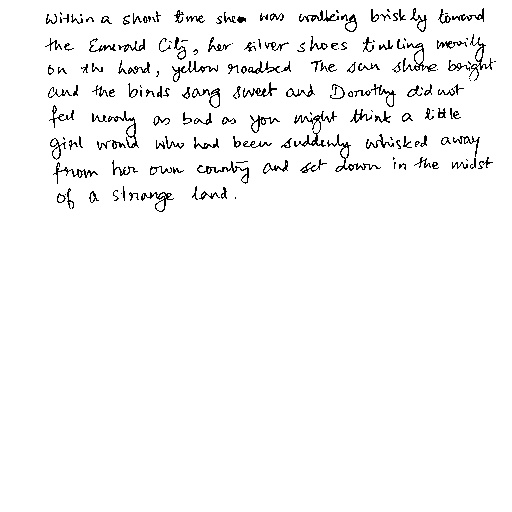 Within a short time she was walking briskly toward
the Emerald City, her silver shoes tinkling merrily
on the hard, yellow roadbed The sun shone bright
and the birds sang sweet and Dorothy did not
feel nearly as bad as you might think a little
girl would who had been suddenly whisked away
from her own country and set down in the midst
of a strange land.